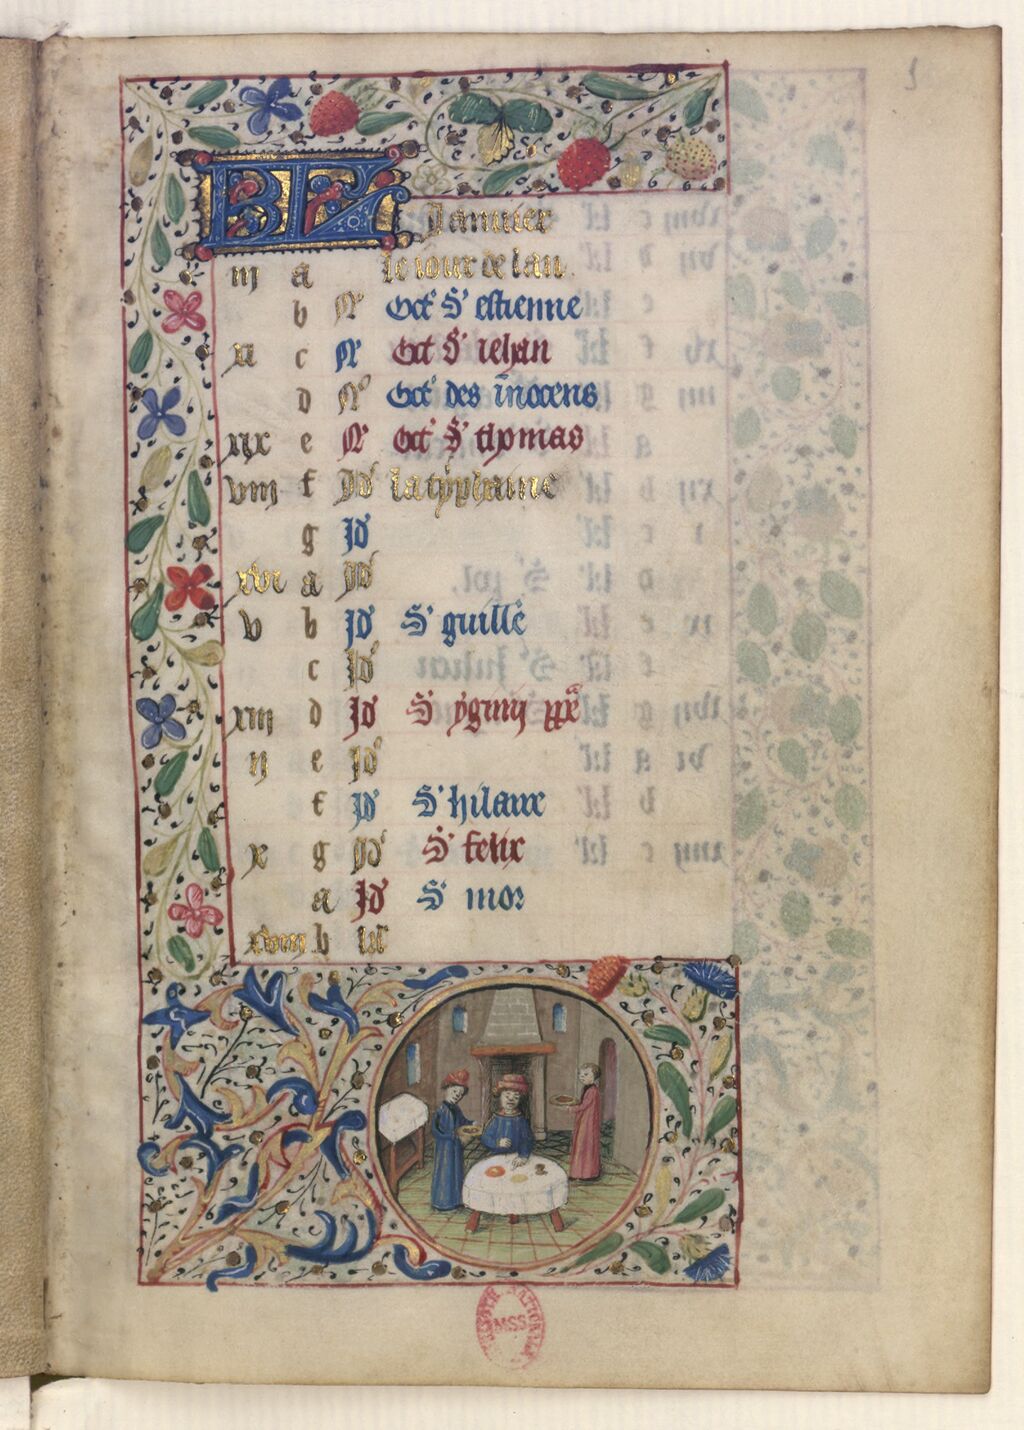 KL Januier
iii a le iour de lan
b N' Oct' S' estienne
xi c N' Oct' S' iehan
d N' Oct' des inocens
xix e N' Oct' S' thomas
viii f Id' la typhaine
g Id'
xvi a Id'
v b Id' S' guille
c Id'
xiii d Id' S'
ii e Id'
f Id' S' hilaire
x g Id' S' felix
a Id' S' mor
xviii b kl'
MSS